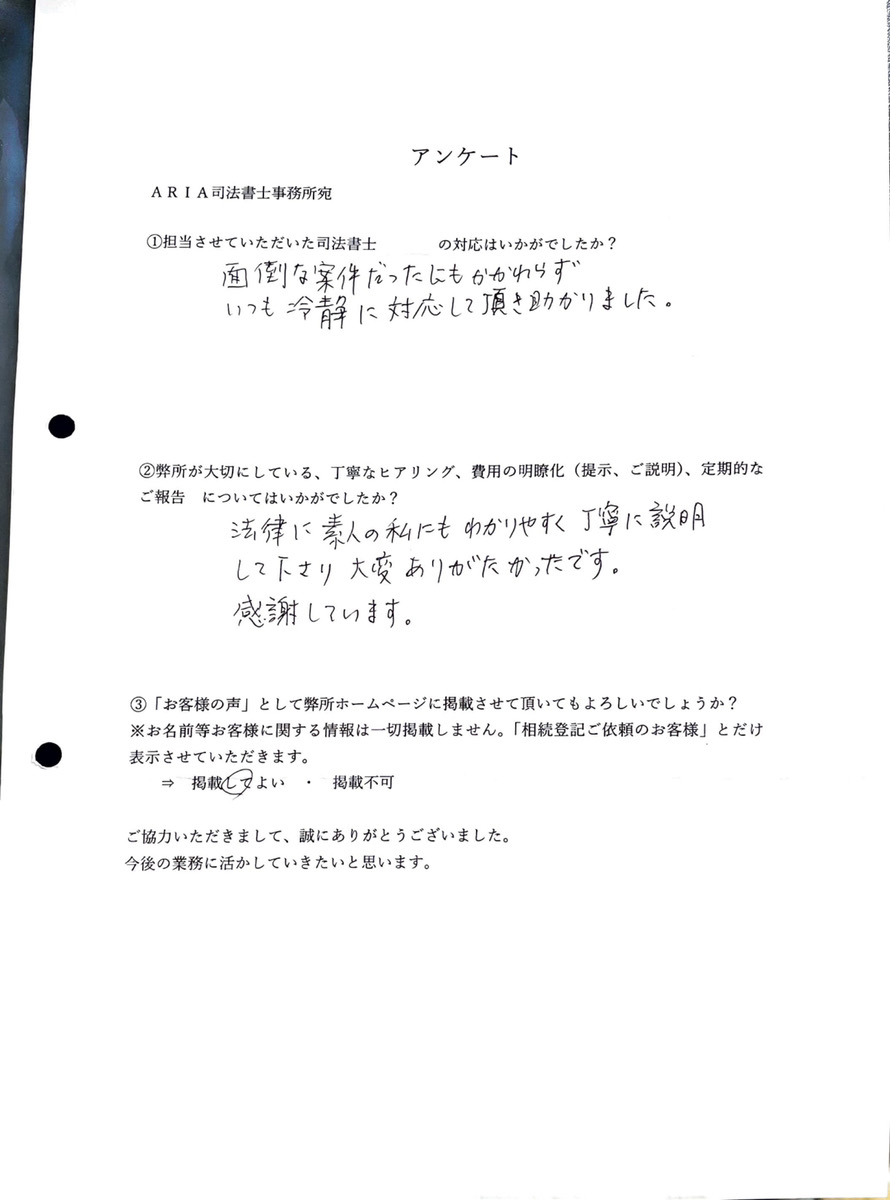 アンケート
ARIA司法書士事務所宛
①担当させていただいた司法書士 の対応はいかがでしたか?
面倒な案件だったにもかかわらず
いつも冷静に対応して頂き助かりました。
②弊所が大切にしている、丁寧なヒアリング、費用の明瞭化（提示、ご説明）、定期的な
ご報告 についてはいかがでしたか?
法律に素人の私にもわかりやすく丁寧に説明
して下さり大変ありがたかったです。
感謝しています。
③「お客様の声」として弊所ホームページに掲載させて頂いてもよろしいでしょうか?
※お名前等お客様に関する情報は一切掲載しません。「相続登記ご依頼のお客様」とだけ
表示させていただきます。
⇒ 掲載してよい ・ 掲載不可
ご協力いただきまして、誠にありがとうございました。
今後の業務に活かしていきたいと思います。